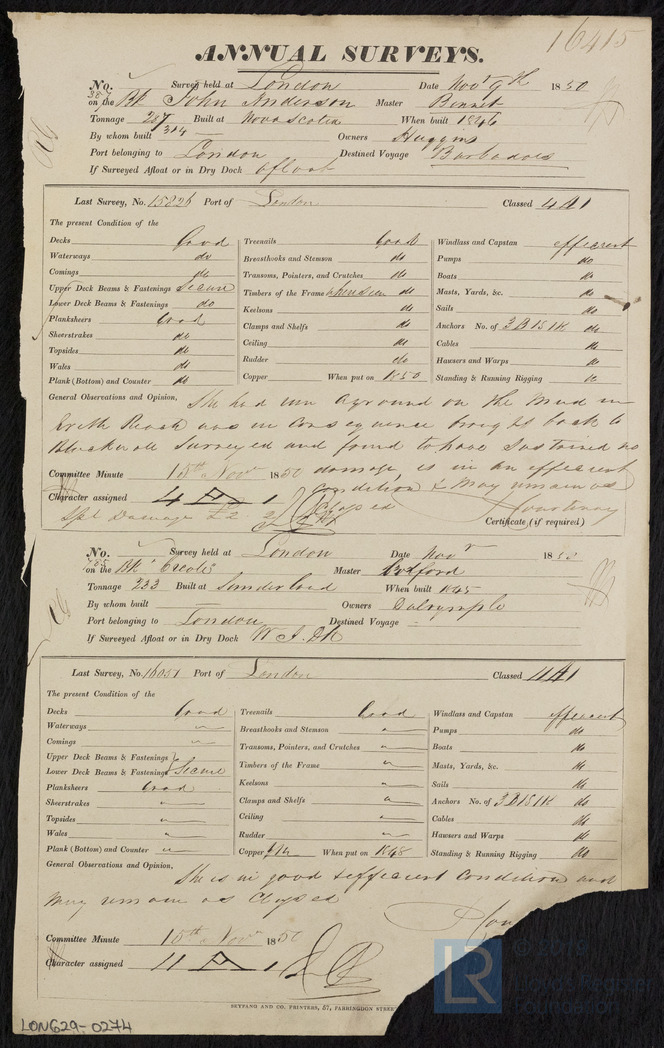 16415
ANNUAL SURVEYS.
No. 387 Survey held at London Date Novr 9th 1850
on the Bk John Anderson Master Bennet
Tonnage 287/314 Built at Nova Scotia When built 1846
By whom built — Owners Huggins
Port belonging to London Destined Voyage Barbadoes
If Surveyed Afloat or in Dry Dock afloat
Last Survey, No. 15826 Port of London Classed 4 A 1
The present Condition of the
Decks Good Treenails Good Windlass and Capstan efficient
Waterways do Breasthooks and Stemson do Pumps do
Comings do Transoms, Pointers, and Crutches do Boats do
Upper Deck Beams & Fastenings Secure Timbers of the Frame when seen do Masts, Yards, &c. do
Lower Deck Beams & Fastenings do Keelsons do Sails do
Planksheers Good Clamps and Shelfs do Anchors No. of 3B 1S 1K do
Sheerstrakes do Ceiling do Cables do
Topsides do Rudder do Hawsers and Warps do
Wales do Copper When put on 1850 Standing & Running Rigging do
Plank (Bottom) and Counter do
General Observations and Opinion, She had run aground on the Mud in
Erith Reach was in Consequence brought back to
Blackwall Surveyed and found to have Sustained no
damage, is in an efficient
condition & May remain as
Classed
Committee Minute 15th Novr 1850
Character assigned 4 A 1
Spl Damage £2 2/
Courtenay
Certificate (if required)
No. 755 Survey held at London Date Novr 1850
on the Bk Creole Master Botford
Tonnage 233 Built at Sunderland When built 1845
By whom built — Owners Dalrymple
Port belonging to London Destined Voyage —
If Surveyed Afloat or in Dry Dock W I Dk
Last Survey, No. 16051 Port of London Classed 4 A 1
The present Condition of the
Decks Good Treenails Good Windlass and Capstan efficient
Waterways " Breasthooks and Stemson " Pumps do
Comings " Transoms, Pointers, and Crutches " Boats do
Upper Deck Beams & Fastenings Timbers of the Frame " Masts, Yards, &c. do
Lower Deck Beams & Fastenings Secure Keelsons " Sails do
Planksheers Good Clamps and Shelfs " Anchors No. of 3B 1S 1K do
Sheerstrakes " Ceiling " Cables do
Topsides " Rudder " Hawsers and Warps do
Wales " Copper When put on 1848 Standing & Running Rigging do
Plank (Bottom) and Counter "
General Observations and Opinion, She is in good & efficient Condition and
May remain as Classed
Committee Minute 15th Novr 1850
Character assigned 4 A 1
SEYFANG AND CO. PRINTERS, 57, FARRINGDON STREET
LON629-0274
LR
Lloyd's Register
Foundation